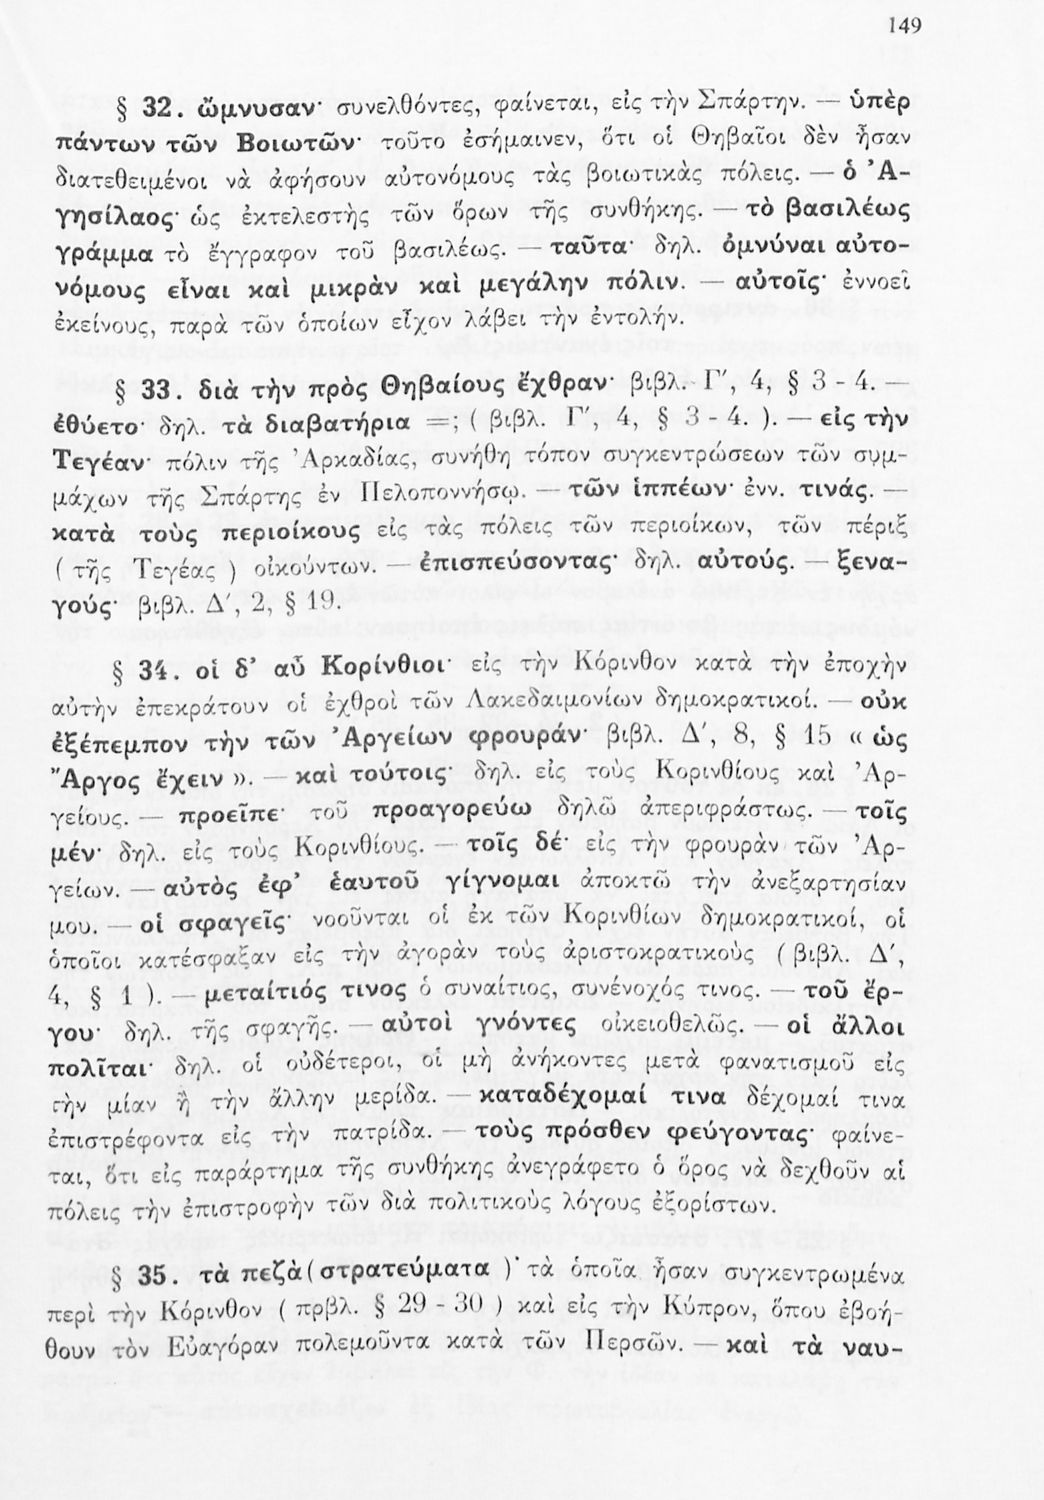 149
§ 32. ὤμνυσαν· συνελθόντες, φαίνεται, εἰς τὴν Σπάρτην. — ὑπὲρ
πάντων τῶν Βοιωτῶν· τοῦτο ἐσήμαινεν, ὅτι οἱ Θηβαῖοι δὲν ἦσαν
διατεθειμένοι νὰ ἀφήσουν αὐτονόμους τὰς βοιωτικὰς πόλεις. — ὁ Ἀ-
γησίλαος· ὡς ἐκτελεστὴς τῶν ὅρων τῆς συνθήκης. — τὸ βασιλέως
γράμμα τὸ ἔγγραφον τοῦ βασιλέως. — ταῦτα· δηλ. ὀμνύναι αὐτο-
νόμους εἶναι καὶ μικρὰν καὶ μεγάλην πόλιν. — αὐτοῖς· ἐννοεῖ
ἐκείνους, παρὰ τῶν ὁποίων εἶχον λάβει τὴν ἐντολήν.
§ 33. διὰ τὴν πρὸς Θηβαίους ἔχθραν· βιβλ. Γ', 4, § 3 - 4. —
ἐθύετο· δηλ. τὰ διαβατήρια =; ( βιβλ. Γ', 4, § 3 - 4. ). — εἰς τὴν
Τεγέαν· πόλιν τῆς Ἀρκαδίας, συνήθη τόπον συγκεντρώσεων τῶν συμ-
μάχων τῆς Σπάρτης ἐν Πελοποννήσῳ. — τῶν ἱππέων· ἐνν. τινάς. —
κατὰ τοὺς περιοίκους εἰς τὰς πόλεις τῶν περιοίκων, τῶν πέριξ
( τῆς Τεγέας ) οἰκούντων. — ἐπισπεύσοντας· δηλ. αὐτούς. — ξενα-
γούς· βιβλ. Δ', 2, § 19.
§ 34. οἱ δ' αὖ Κορίνθιοι· εἰς τὴν Κόρινθον κατὰ τὴν ἐποχὴν
αὐτὴν ἐπεκράτουν οἱ ἐχθροὶ τῶν Λακεδαιμονίων δημοκρατικοί. — οὐκ
ἐξέπεμπον τὴν τῶν Ἀργείων φρουράν· βιβλ. Δ', 8, § 15 « ὡς
Ἄργος ἔχειν ». — καὶ τούτοις· δηλ. εἰς τοὺς Κορινθίους καὶ Ἀρ-
γείους. — προεῖπε· τοῦ προαγορεύω δηλῶ ἀπεριφράστως. — τοῖς
μέν· δηλ. εἰς τοὺς Κορινθίους. — τοῖς δέ· εἰς τὴν φρουρὰν τῶν Ἀρ-
γείων. — αὐτὸς ἐφ' ἑαυτοῦ γίγνομαι ἀποκτῶ τὴν ἀνεξαρτησίαν
μου. — οἱ σφαγεῖς· νοοῦνται οἱ ἐκ τῶν Κορινθίων δημοκρατικοί, οἱ
ὁποῖοι κατέσφαξαν εἰς τὴν ἀγορὰν τοὺς ἀριστοκρατικοὺς ( βιβλ. Δ',
4, § 1 ). — μεταίτιός τινος ὁ συναίτιος, συνένοχός τινος. — τοῦ ἔρ-
γου· δηλ. τῆς σφαγῆς. — αὐτοὶ γνόντες οἰκειοθελῶς. — οἱ ἄλλοι
πολῖται· δηλ. οἱ οὐδέτεροι, οἱ μὴ ἀνήκοντες μετὰ φανατισμοῦ εἰς
τὴν μίαν ἢ τὴν ἄλλην μερίδα. — καταδέχομαί τινα δέχομαί τινα
ἐπιστρέφοντα εἰς τὴν πατρίδα. — τοὺς πρόσθεν φεύγοντας· φαίνε-
ται, ὅτι εἰς παράρτημα τῆς συνθήκης ἀνεγράφετο ὁ ὅρος νὰ δεχθοῦν αἱ
πόλεις τὴν ἐπιστροφὴν τῶν διὰ πολιτικοὺς λόγους ἐξορίστων.
§ 35. τὰ πεζὰ ( στρατεύματα )· τὰ ὁποῖα ἦσαν συγκεντρωμένα
περὶ τὴν Κόρινθον ( πρβλ. § 29 - 30 ) καὶ εἰς τὴν Κύπρον, ὅπου ἐβοή-
θουν τὸν Εὐαγόραν πολεμοῦντα κατὰ τῶν Περσῶν. — καὶ τὰ ναυ-